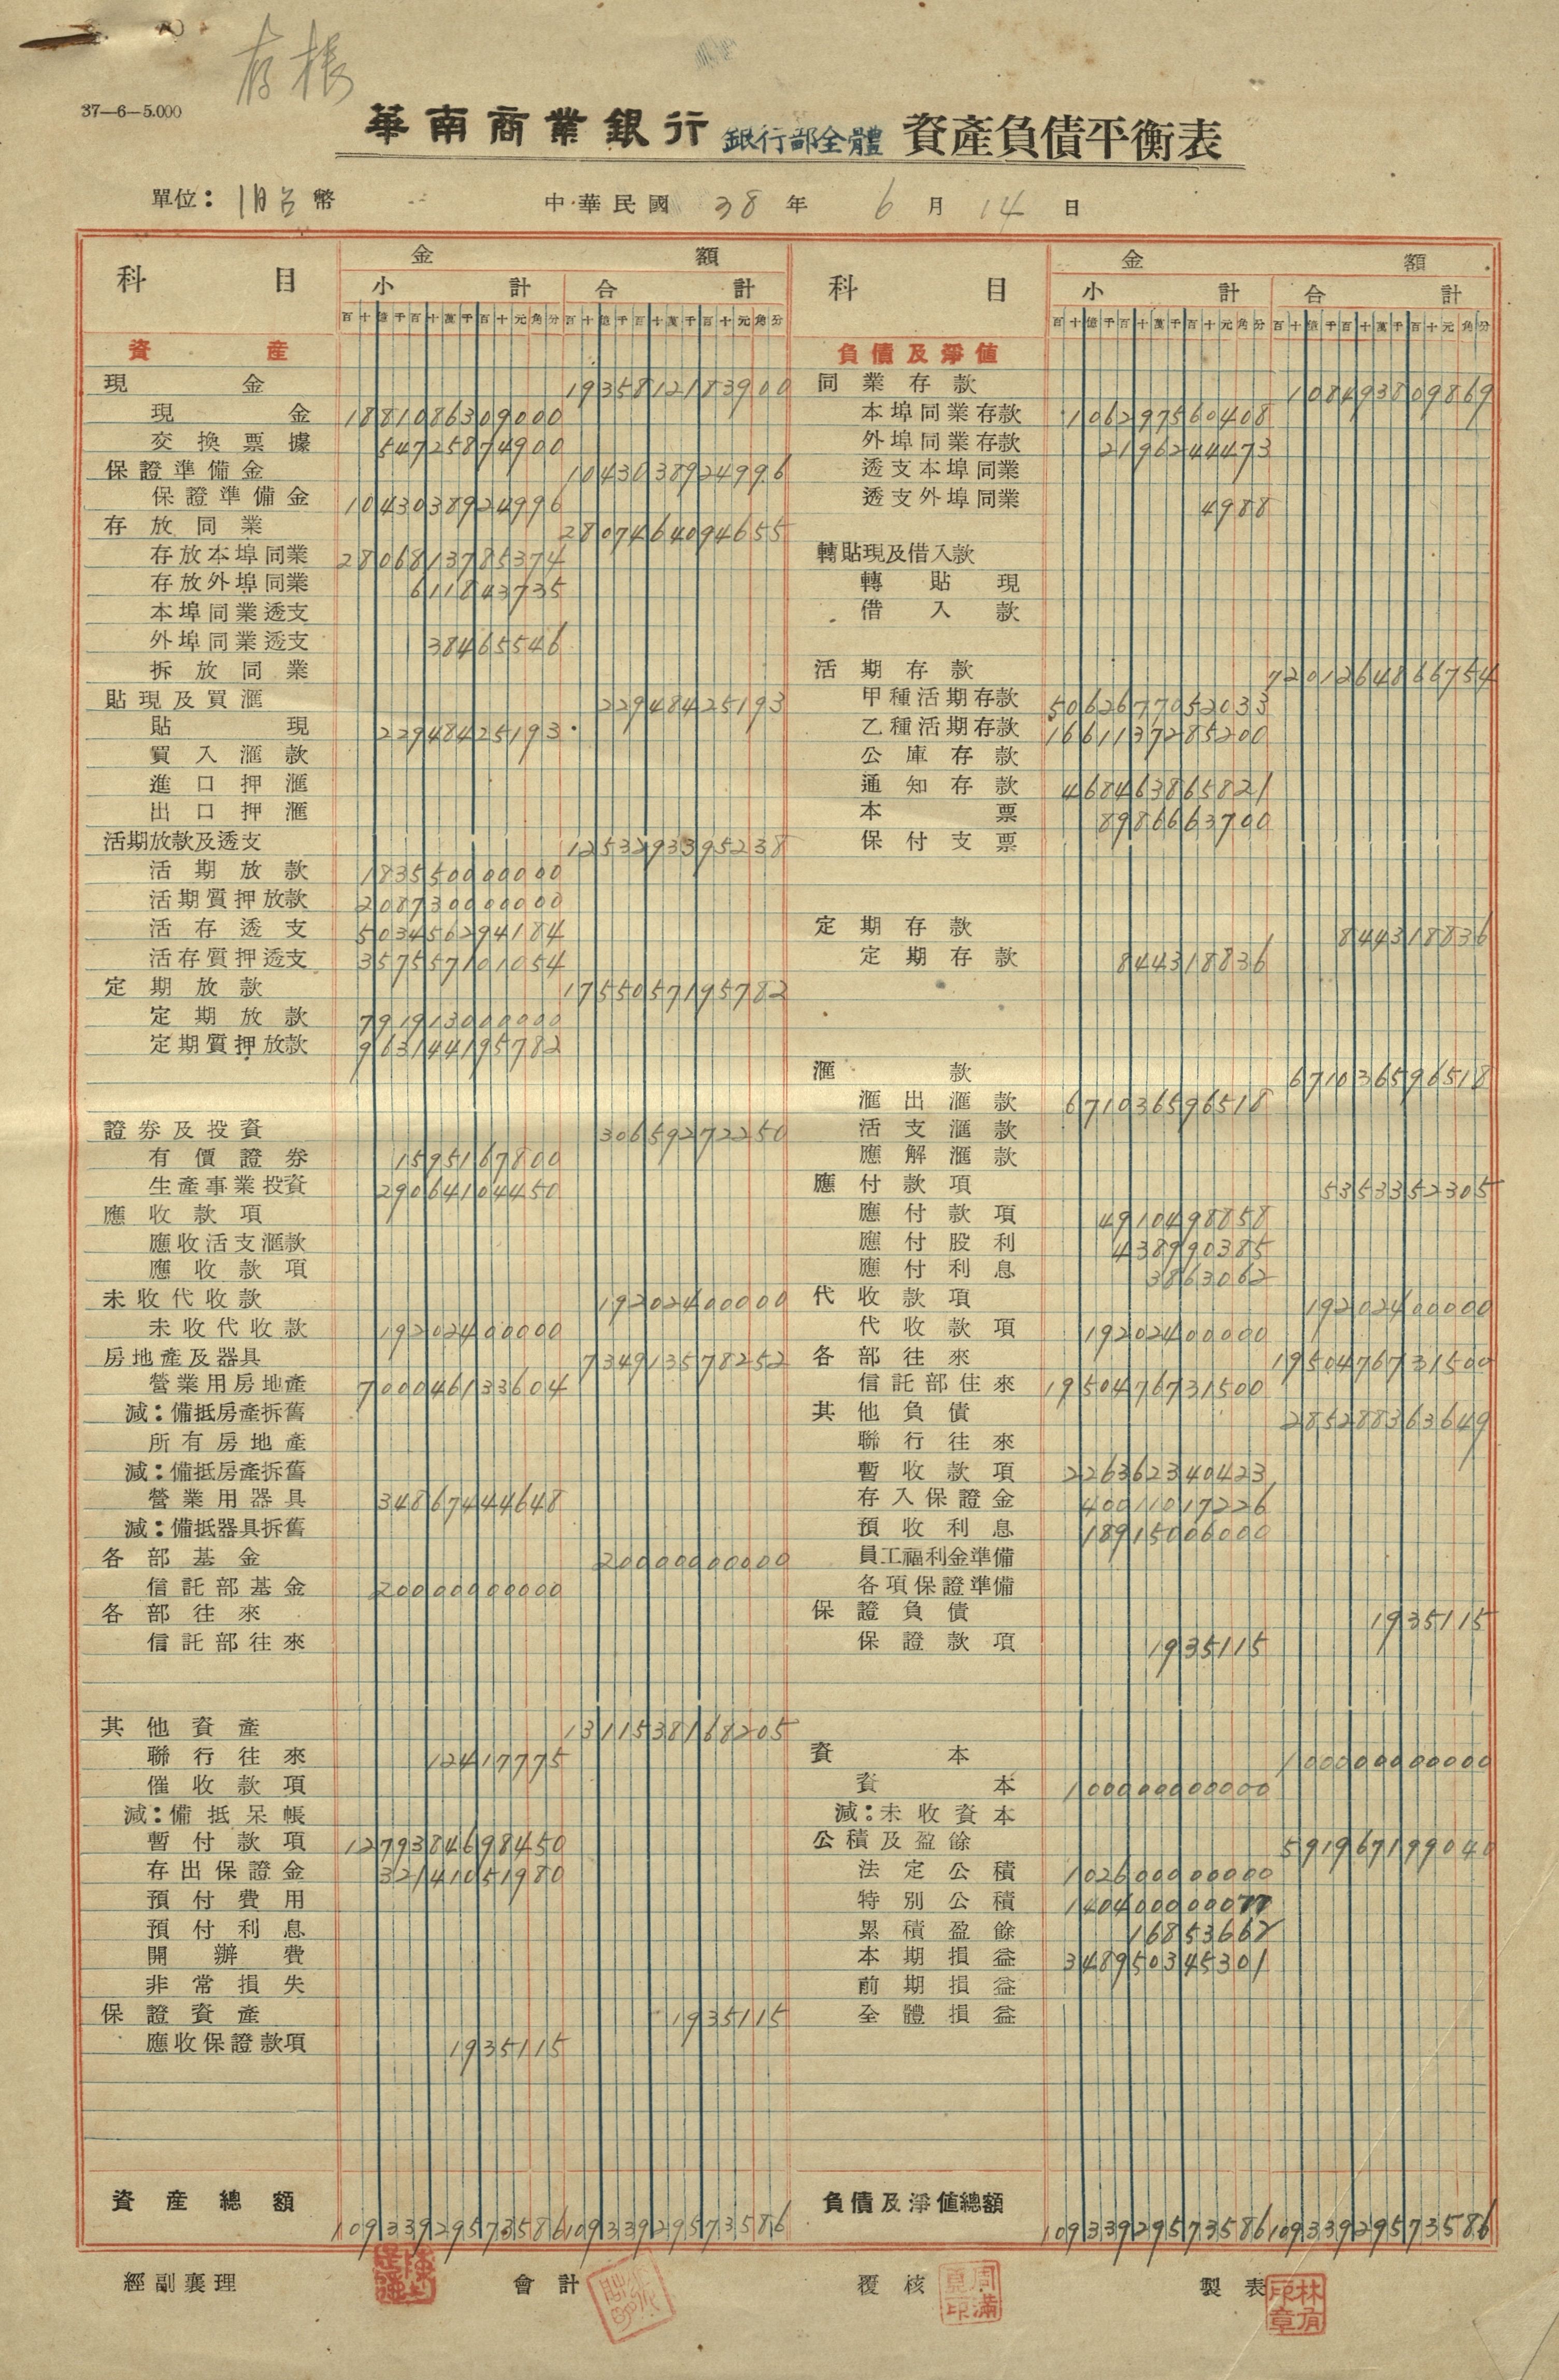 存根
37—6—5.000
華南商業銀行 銀行部全體 資產負債平衡表
單位：旧台幣 中華民國 38 年 6 月 14 日
科目 金額 科目 金額
小計 合計 小計 合計
百十億千百十萬千百十元角分 百十億千百十萬千百十元角分 百十億千百十萬千百十元角分 百十億千百十萬千百十元角分
資產
現金 1935812183900
現金 1881086309000
交換票據 54725874900
保證準備金 1043038924996
保證準備金 1043038924996
存放同業 2807464094655
存放本埠同業 2806813785374
存放外埠同業 611843735
本埠同業透支
外埠同業透支 38465546
拆放同業
貼現及買滙 22948425193
貼現 22948425193
買入滙款
進口押滙
出口押滙
活期放款及透支 1253293395238
活期放款 183550000000
活期質押放款 208730000000
活存透支 503456294184
活存質押透支 357557101054
定期放款 1755057195782
定期放款 791913000000
定期質押放款 963144195782
證券及投資 30659272250
有價證券 1595167800
生產事業投資 29064104450
應收款項
應收活支滙款
應收款項
未收代收款 19202400000
未收代收款 19202400000
房地產及器具 734913578252
營業用房地產 700046133604
減：備抵房產拆舊
所有房地產
減：備抵房產拆舊
營業用器具 34867444648
減：備抵器具拆舊
各部基金 20000000000
信託部基金 20000000000
各部往來
信託部往來
其他資產 1311538168205
聯行往來 12417775
催收款項
減：備抵呆帳
暫付款項 1279384698450
存出保證金 32141051980
預付費用
預付利息
開辦費
非常損失
保證資產 1935115
應收保證款項 1935115
資產總額 10933929573586 10933929573586
負債及淨值
同業存款 108493809869
本埠同業存款 106297560408
外埠同業存款 2196244473
透支本埠同業
透支外埠同業 4988
轉貼現及借入款
轉貼現
借入款
活期存款 7201264866754
甲種活期存款 5062677052033
乙種活期存款 1661137285200
公庫存款
通知存款 468463865821
本票 8986663700
保付支票
定期存款 844318836
定期存款 844318836
滙款 671036596518
滙出滙款 671036596518
活支滙款
應解滙款
應付款項 5353352305
應付款項 4910498858
應付股利 438990385
應付利息 3863062
代收款項 19202400000
代收款項 19202400000
各部往來 1950476731500
信託部往來 1950476731500
其他負債 285288363649
聯行往來
暫收款項 226362340423
存入保證金 40011017226
預收利息 18915006000
員工福利金準備
各項保證準備
保證負債 1935115
保證款項 1935115
資本 100000000000
資本 100000000000
減：未收資本
公積及盈餘 591967199040
法定公積 102600000000
特別公積 140400000077
累積盈餘 16853662
本期損益 348950345301
前期損益
全體損益
負債及淨值總額 10933929573586 10933929573586
經副襄理 會計 覆核 製表